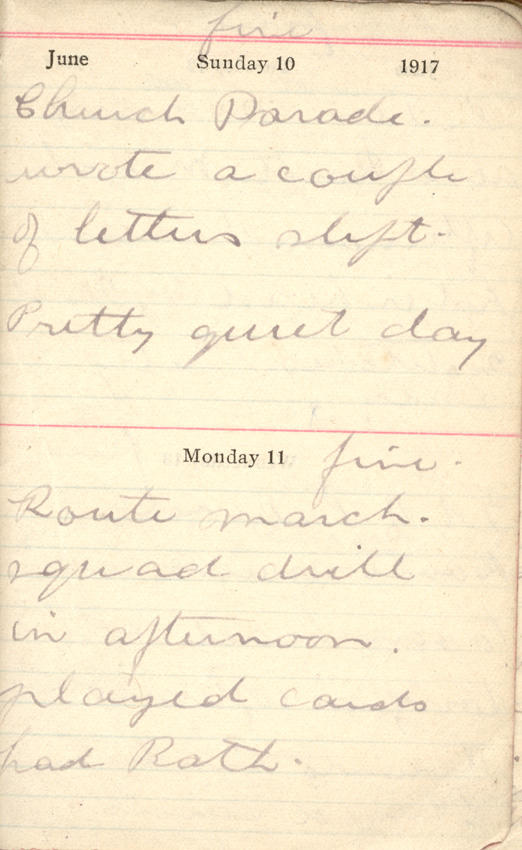 fine
June Sunday 10 1917
Church Parade.
wrote a couple
of letters slept.
Pretty quiet day
Monday 11 fine.
Route march.
squad drill
in afternoon.
played cards
had Bath.